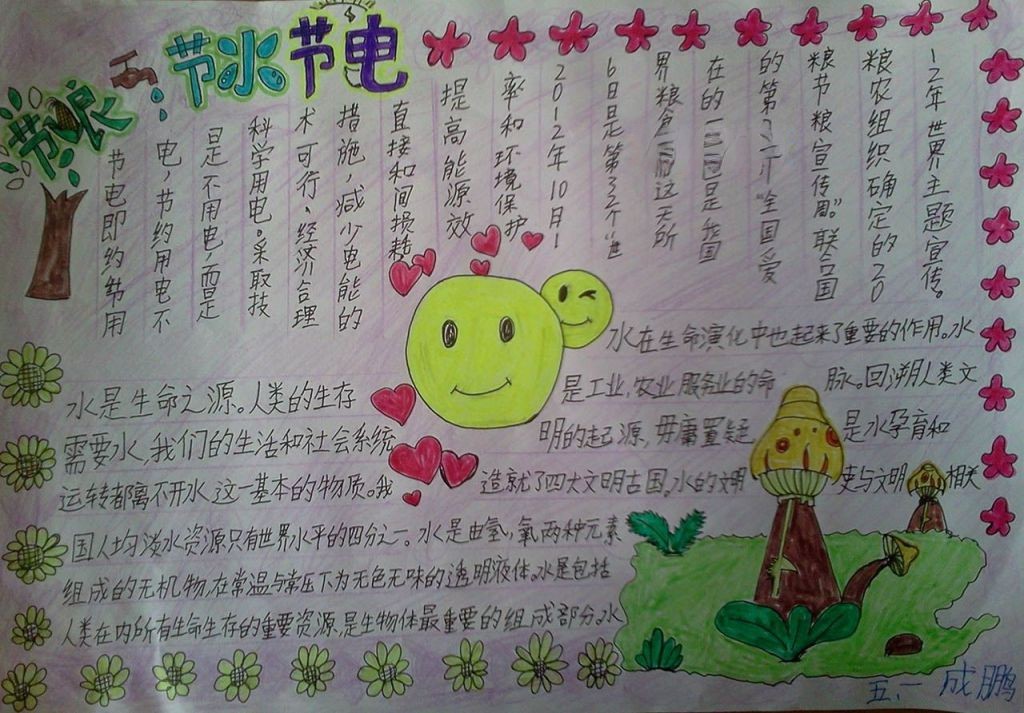 节粮
节水节电
节电即约节用
电,节约用电不
是不用电,而是
科学用电。采取技
术可行、经济合理
措施,减少电能的
直接和间损耗
提高能源效
率和环境保护
2012年10月1
6日是第33个“世
界粮食 这天所
在的 是我国
的第 “全国爱
粮节粮宣传周。”联合国
粮农组织确定的20
12年世界主题宣传。
水是生命之源。人类的生存
需要水,我们的生活和社会系统
运转都离不开水,这一基本的物质。我
国人均淡水资源只有世界水平的四分之一。水是由氢、氧两种元素
组成的无机物,在常温与常压下为无色无味的透明液体。水是包括
人类在内所有生命生存的重要资源,是生物体最重要的组成部分。水
水在生命演化中也起来了重要的作用。水
是工业,农业,服务业的命脉。回溯人类文
明的起源,毋庸置疑是水孕育和
造就了四大文明古国。水的文明史与文明相关
五、一 成鹏